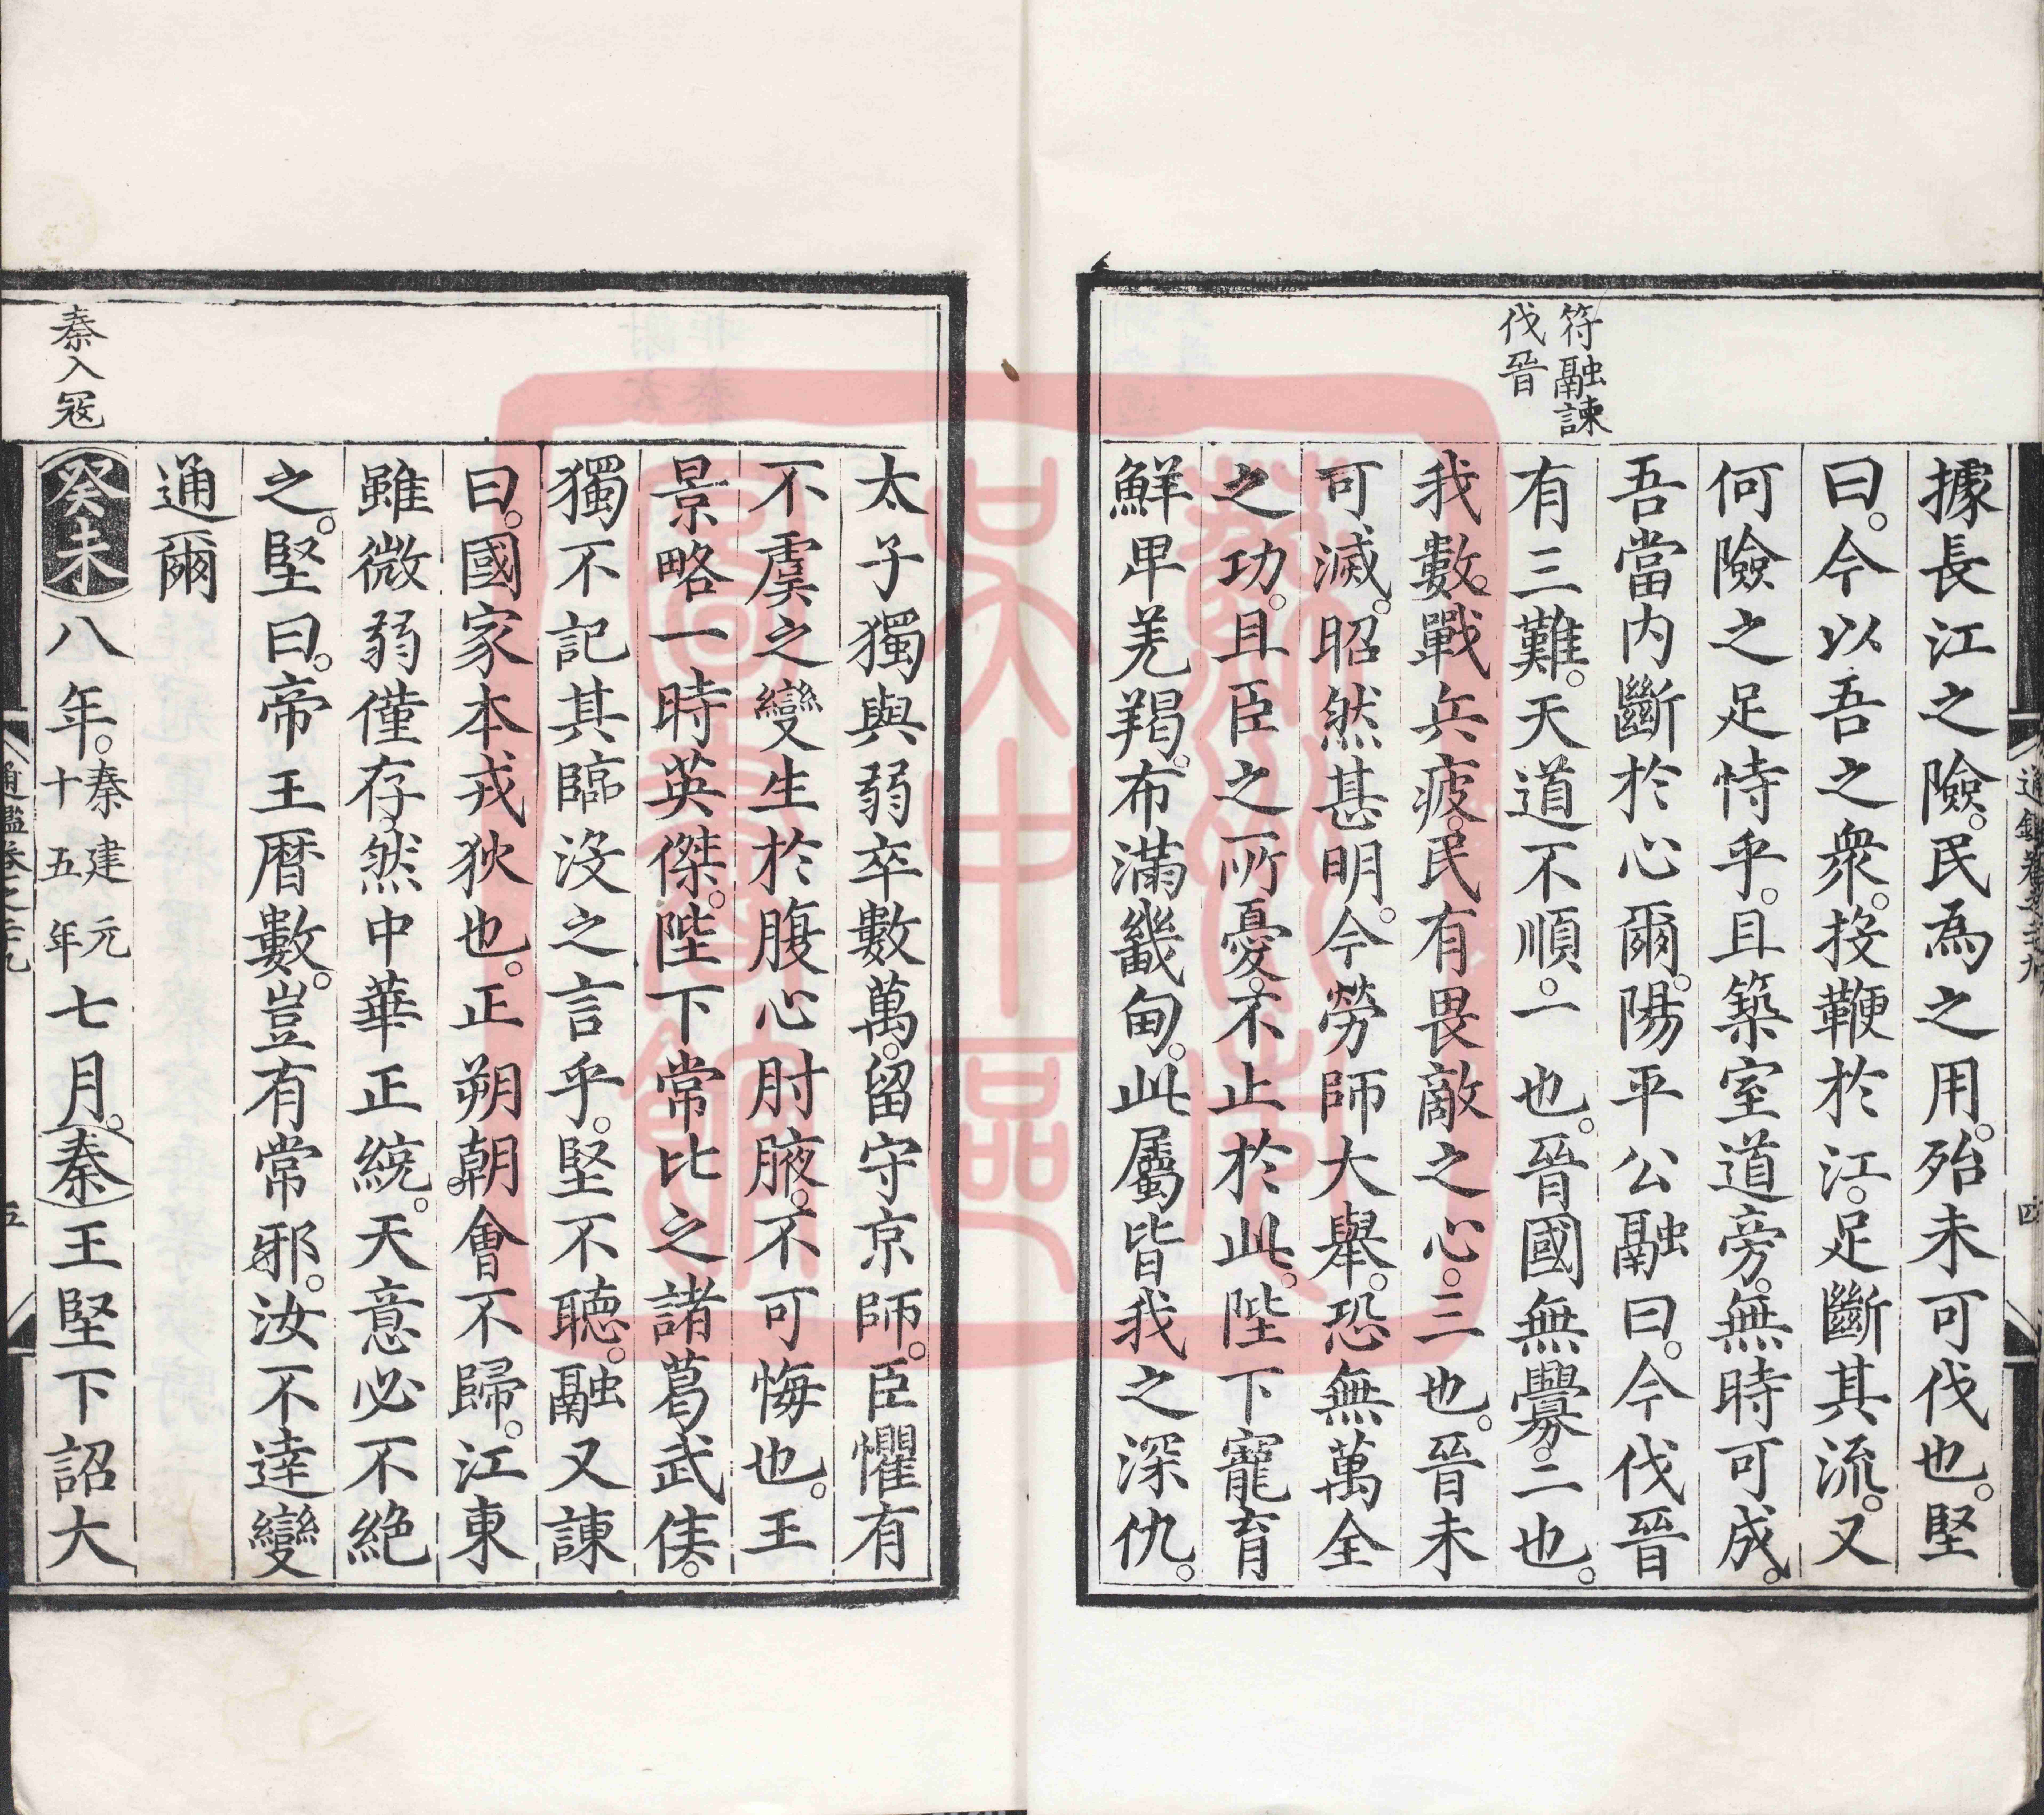 符融諫
伐晉
據長江之險。民為之用。殆未可伐也。堅
曰。今以吾之衆。投鞭於江。足斷其流。又
何險之足恃乎。且築室道旁。無時可成。
吾當内斷於心爾。陽平公融曰。今伐晉
有三難。天道不順。一也。晉國無釁。二也。
我數戰兵疲。民有畏敵之心。三也。晉未
可滅。昭然甚明。今勞師大舉。恐無萬全
之功。且臣之所憂。不止於此。陛下寵育
鮮卑羌羯。布滿畿甸。此屬皆我之深仇。
太子獨與弱卒數萬。留守京師。臣懼有
不虞之變生於腹心肘腋。不可悔也。王
景略一時英傑。陛下常比之諸葛武侯。
獨不記其臨没之言乎。堅不聽。融又諫
曰。國家本戎狄也。正朔朝會不歸。江東
雖微弱僅存。然中華正統。天意必不絶
之。堅曰。帝王曆數。豈有常邪。汝不達變
通爾
秦入寇
癸未八年。秦建元十五年七月。秦王堅下詔大